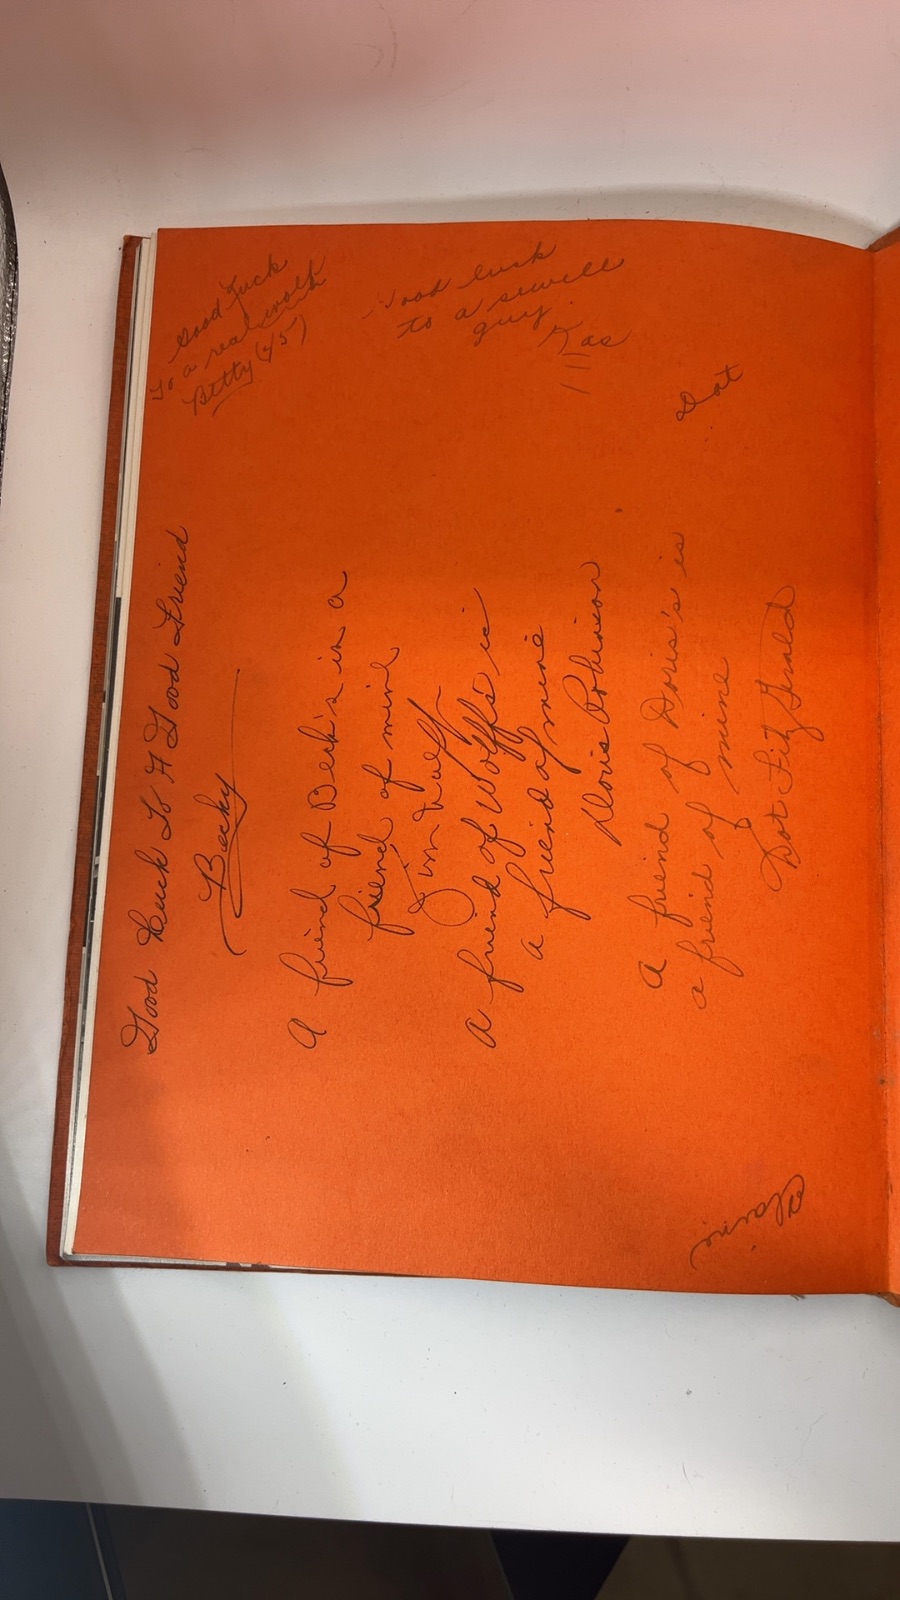 Good Luck
To a real wolf
Betty (45)
Good luck
to a swell
guy.
Kas
Dot
Good Luck To A Good Friend
Becky
A friend of Beck's is a
friend of mine
Jim Wolff
A friend of Wolff's is
a friend of mine
Doris Robinson
A friend of Doris's is
a friend of mine
Dot Fitz Gerald
Elaine